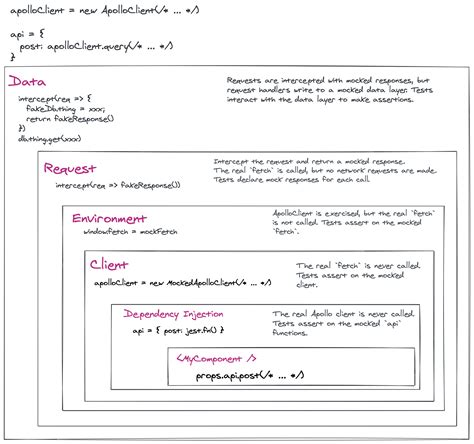 apolloClient = new ApolloClient(/* ... */)
api = {
post: apolloClient.query(/* ... */)
}
Data
Requests are intercepted with mocked responses, but
request handlers write to a mocked data layer. Tests
interact with the data layer to make assertions.
intercept(req => {
fakeDb.thing = xxx;
return fakeResponse()
})
db.thing.get(xxx)
Request
Intercept the request and return a mocked response.
The real `fetch` is called, but no network requests are made.
Tests declare mock responses for each call.
intercept(req => fakeResponse())
Environment
ApolloClient is exercised, but the real `fetch`
is not called. Tests assert on the mocked
`fetch`.
window.fetch = mockFetch
Client
The real `fetch` is never called.
Tests assert on the mocked
client.
apolloClient = new MockedApolloClient(/* ... */)
Dependency Injection
The real Apollo client is never called.
Tests assert on the mocked `api`
functions.
api = { post: jest.fn() }
<MyComponent />
props.api.post(/* ... */)